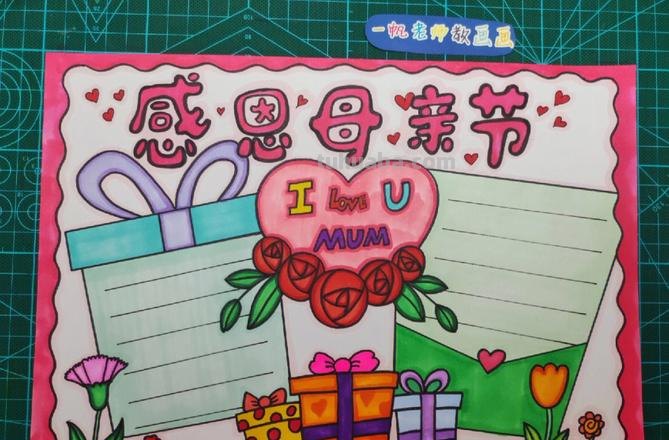 一帆老师教画画
感恩母亲节
tuhuaba.com
I LOVE U
MUM